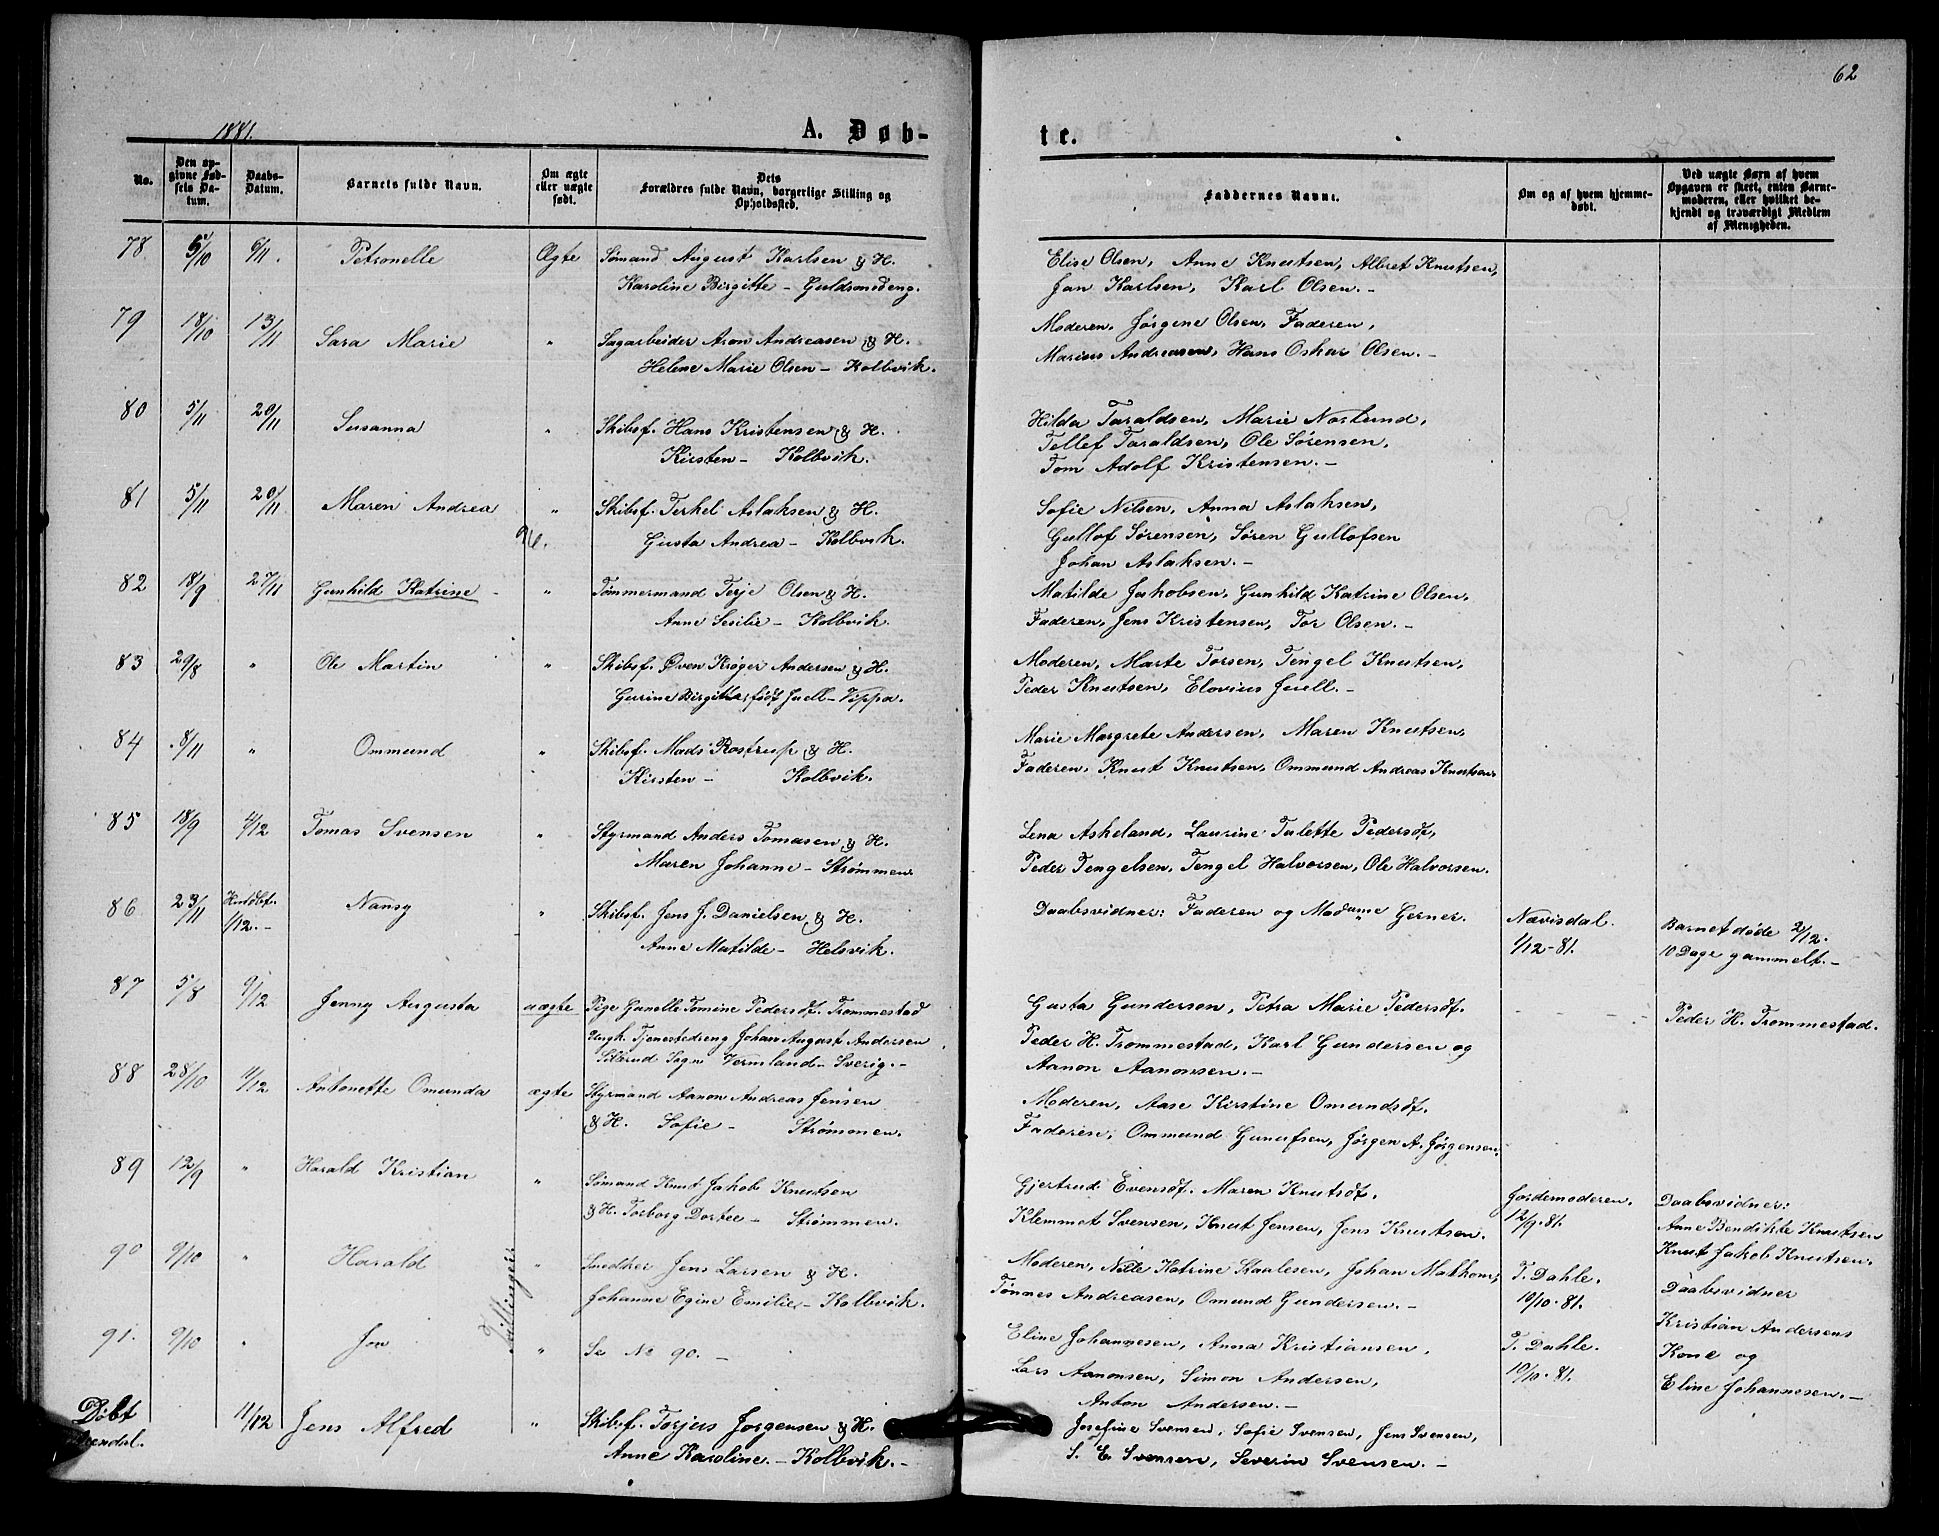 62
1881.
A. Døb-
te.
No.
Den op-
givne Fød-
sels Da-
tum.
Daabs-
Datum.
Barnets fulde Navn.
Om ægte
eller uægte
født.
Dets
Forældres fulde Navn, borgerlige Stilling og
Opholdssted.
Faddernes Navne.
Om og af hvem hjemme-
døbt.
Ved uægte Børn af hvem
Opgaven er skeet, enten Barne-
moderen, eller hvilket be-
kjendt og troværdigt Medlem
af Menigheden.
78 5/10 6/11. Petronelle Ægte Sømand August Karlsen & H. Elise Olsen, Anne Knutsen, Albret Knutsen,
Karoline Birgitte - Guldsmedeng. Jan Karlsen, Karl Olsen.-
79 18/10 13/11 Sara Marie " Sagarbeider Aron Andreasen & H. Moderen, Jørgene Olsen, Faderen,
Helene Marie Olsen - Kolbvik. Marius Andreasen, Hans Oskar Olsen.-
80 5/11 20/11 Susanna " Skibsf. Hans Kristensen & H. Hilda Taraldsen, Marie Noslund,
Kirsten - Kolbvik. Tellef Taraldsen, Ole Sørensen,
Tom Adolf Kristensen.-
81 5/11 20/11 Maren Andrea " Skibsf. Terkel Aslaksen & H. Sofie Nilsen, Anna Aslaksen,
Gusta Andrea - Kolbvik. Gullof Sørensen, Søren Gullofsen
Johan Aslaksen.-
82 18/9 27/11 Gunhild Katrine - " Tømmermand Terje Olsen & H. Matilde Jakobsen, Gunhild Katrine Olsen,
Anne Sesilie - Kolbvik. Faderen, Jens Kristensen, Tor Olsen.-
83 29/8 " Ole Martin " Skibsf. Øven Krøger Andersen & H. Moderen, Marte Torsen, Tengel Knutsen,
Gurine Birgitte, født Juell - Vippa. Peder Knutsen, Elovius Juell.-
84 8/11 " Ommund " Skibsf. Mads Rostrup & H. Marie Margrete Andersen, Maren Knutsen,
Kirsten - Kolbvik. Faderen, Knut Knutsen, Ommund Andreas Knutsen
85 18/9 4/12 Tomas Svensen " Styrmand Anders Tomasen & H. Lena Askeland, Laurine Talette Pedersdt,
Maren Johanne - Strømmen. Peder Tengelsen, Tengel Halvorsen, Ole Halvorsen.
86 23/11 1/12.- Nansy " Skibsf. Jens J. Danielsen & H. Daabsvidner: Faderen og Madame Gerner. Nævisdal. Barnet døde 2/12.
Anne Matilde - Helsvik. 1/12-81. 10 Dage gammelt.-
87 5/8 9/12 Jenny Augusta uægte Pige Gunelle Tomine Pedersdt. Trommestad Gusta Gundersen, Petra Marie Pedersdt. Peder H. Trommestad.
Ungk. Tjenestedreng Johan August Andersen Peder H. Trommestad, Karl Gundersen og
Sogn Vermland - Sverig.- Aanon Aanonsen.-
88 28/10 11/12 Antonette Omunda ægte Styrmand Aanon Andreas Jensen Moderen, Aase Kirstine Omundsdt.
& H. Sofie - Strømmen. Faderen, Ommund Gunufsen, Jørgen A. Jørgensen.
89 12/9 " Harald Kristian " Sømand Knut Jakob Knutsen Gjertrud Evensdt. Maren Knutsdt. Jordemoderen. Daabsvidner:
& H. Torborg Dortee - Strømmen. Klemmet Svensen, Knut Jensen, Jens Knutsen. 12/9.81. Anne Bendikte Knutsen
Knut Jakob Knutsen.
90 9/10 " Harald Tvillinger " Snedker Jens Larsen & H. Moderen, Nille Katrine Skaalesen, Johan Makhom, T. Dahle. Daabsvidner
Johanne Egine Emilie - Kolbvik. Tønnes Andreasen, Omund Gundersen.- 10/10.81.
91. 9/10 " Jon " Se No 90.- Eline Johannesen, Anna Kristiansen, T. Dahle. Kristian Andersens
Lars Aanonsen, Simon Andersen, 10/10.81. Kone og
Anton Andersen.- Eline Johannesen.-
Døbt 11/12 Jens Alfred " Skibsf. Torjus Jorgensen & H. Josefine Svensen, Sofie Svensen, Jens Svensen,
Arendal. Anne Karoline.- Kolbvik.- S. E. Svensen, Severin Svensen.-